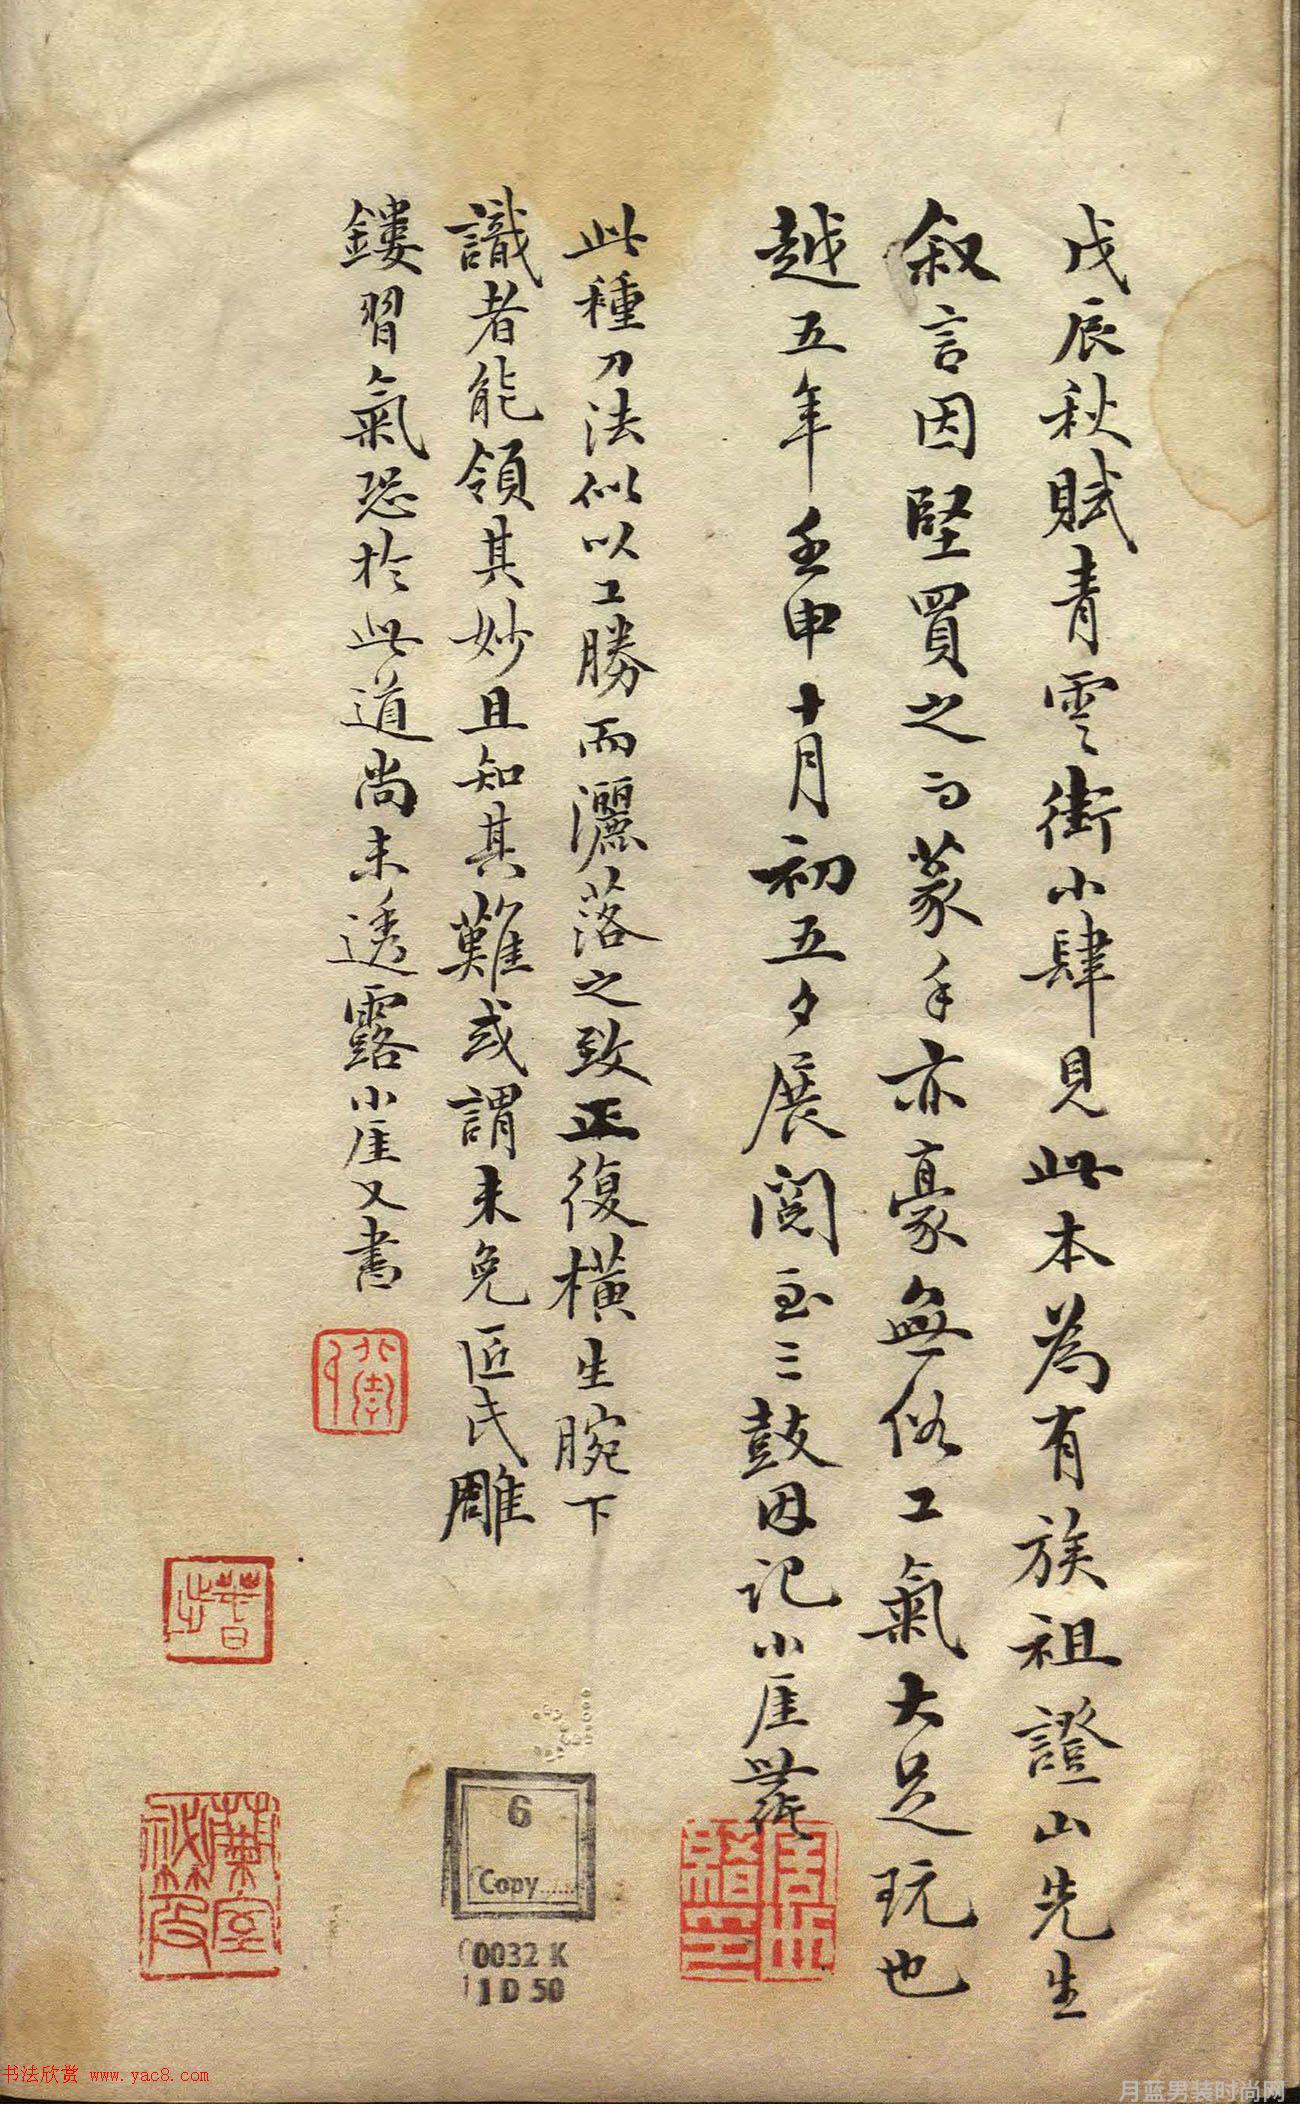 戊辰秋賦青雲街小肆見此本為有族祖證山先生
叙言因堅買之而篆手亦豪無俗工氣大足玩也
越五年壬申十月初五夕展閱至三鼓因記小厓
此種刀法似以工勝而灑落之致正復橫生腕下
識者能領其妙且知其難或謂未免匠氏雕
鏤習氣恐於此道尚未透露小厓又書
6
Copy......
0032 K
1 D 50
书法欣赏 www.yac8.com
月蓝男装时尚网